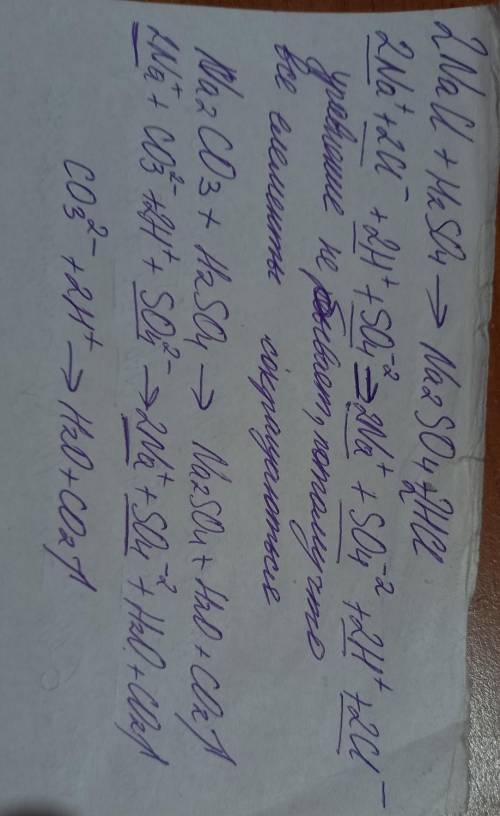 2NaCl + H2SO4 → Na2SO4 + 2HCl
2Na⁺ + 2Cl⁻ + 2H⁺ + SO4⁻² → 2Na⁺ + SO4⁻² + 2H⁺ + 2Cl⁻
уравнение не бывает, потому что
все елементы сокращються
Na2CO3 + H2SO4 → Na2SO4 + H2O + CO2↑
2Na⁺ + CO3²⁻ + 2H⁺ + SO4²⁻ → 2Na⁺ + SO4⁻² + H2O + CO2↑
CO3²⁻ + 2H⁺ → H2O + CO2↑